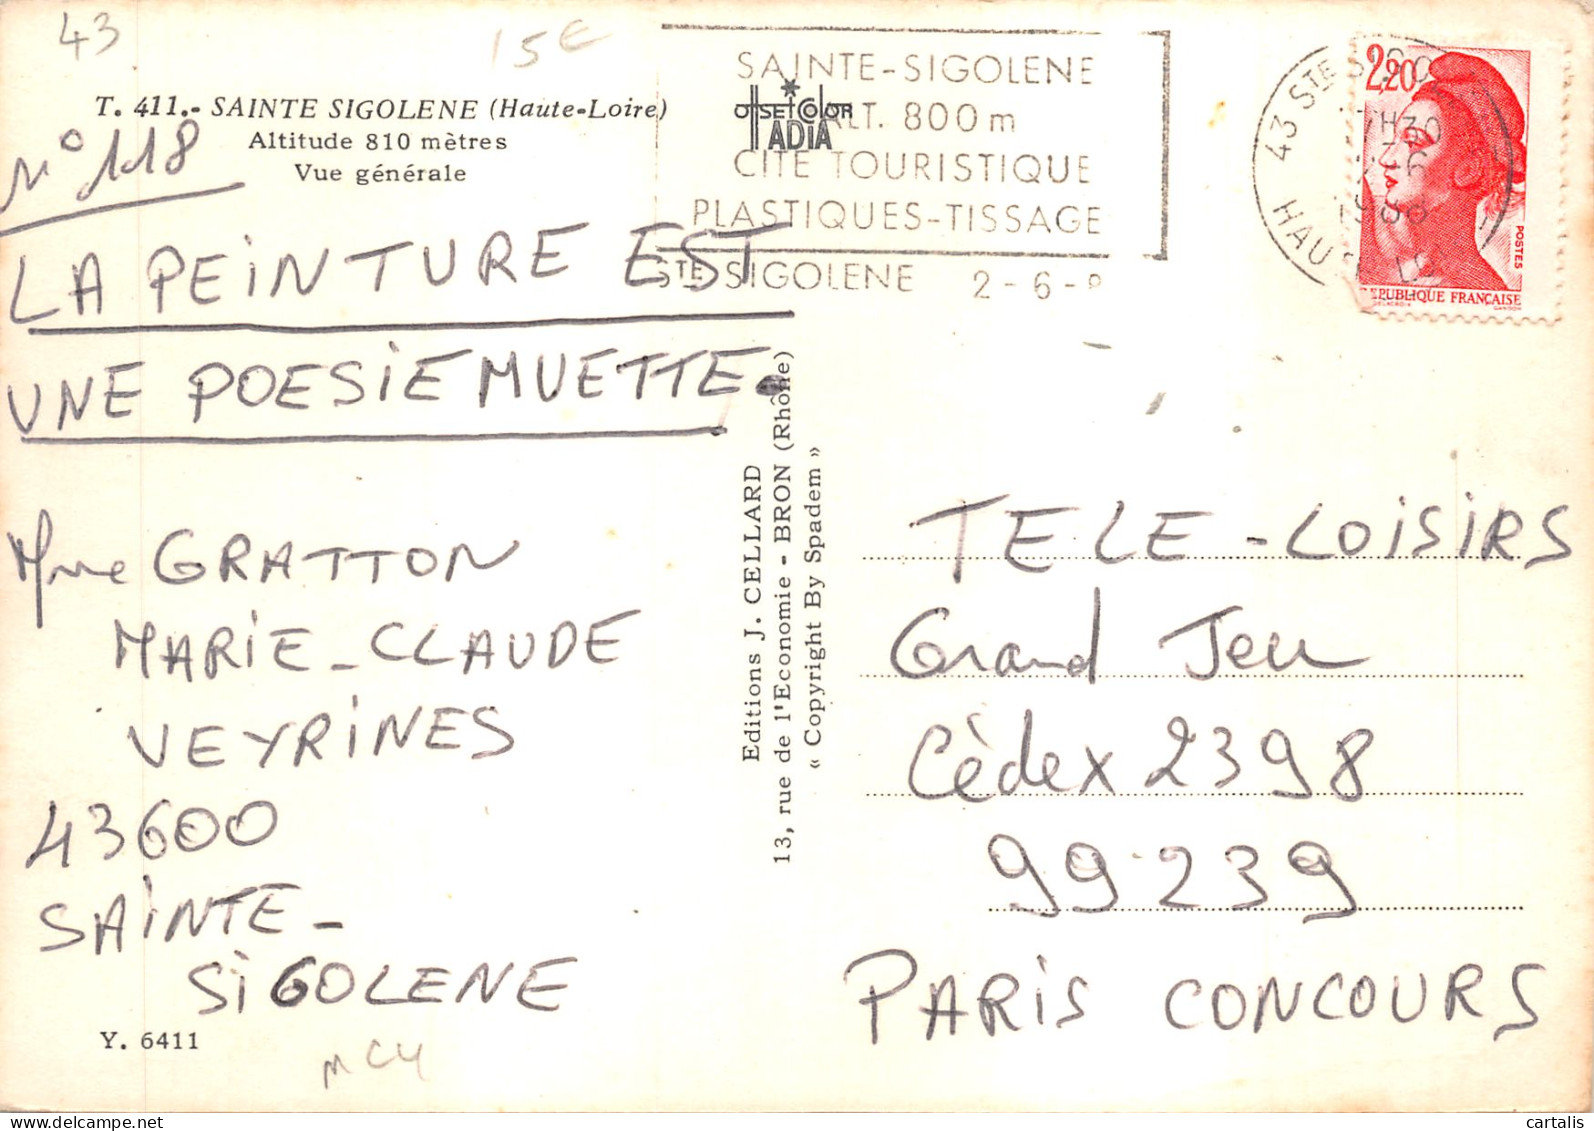 43
15€
T. 411.- SAINTE SIGOLENE (Haute-Loire)
Altitude 810 mètres
Vue générale
N° 118
LA PEINTURE EST
UNE POESIE MUETTE.
Mme GRATTON
MARIE-CLAUDE
VEYRINES
43600
SAINTE-
SIGOLENE
Y. 6411
MC4
SAINTE-SIGOLENE
ALT. 800 m
CITE TOURISTIQUE
PLASTIQUES-TISSAGE
STE SIGOLENE 2-6-8
OffSET COLOR
ADIA
Editions J. CELLARD
13, rue de l'Economie - BRON (Rhône)
« Copyright By Spadem »
43 STE
HAU
1988
2,20
POSTES
REPUBLIQUE FRANÇAISE
DELACROIX
GANDON
TELE-LOISIRS
Grand Jeu
Cèdex 2398
99239
PARIS CONCOURS
cartalis
www.delcampe.net